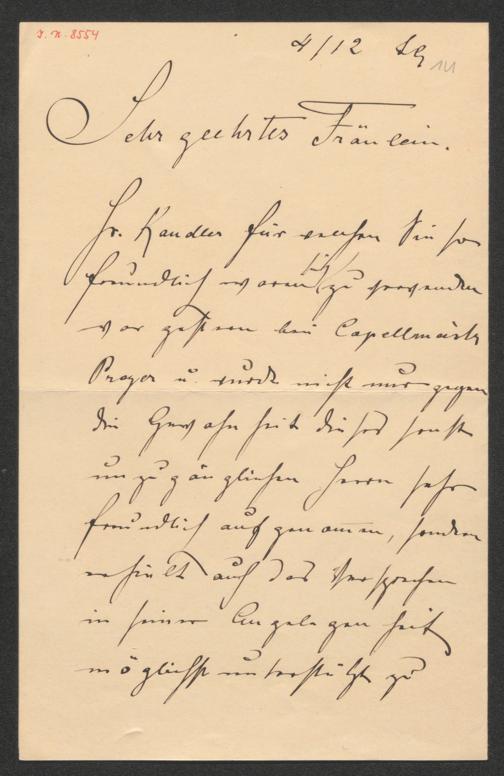 J. N. 8554
4/12 89
141
Sehr geehrtes Fräulein.
Hr. Kandler für welchen Sie so
freundlich waren sich zu verwenden
war gestern bei Capellmeister
Preger u. wurde nicht nur gegen
die Gewohnheit dieses sonst
unzugänglichen Herrn sehr
freundlich aufgenommen, sondern
erhielt auch das Versprechen
in seiner Angelegenheit
möglichst unterstützt zu